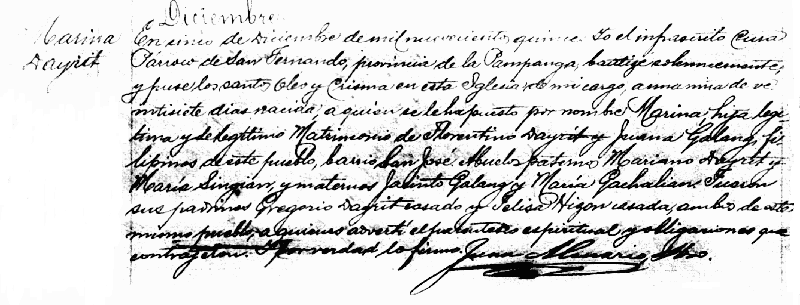 Diciembre
Marina
Dayrit
En cinco de Diciembre de mil nuevecientos quince. Yo el infrascrito Cura
Párroco de San Fernando, provincia de la Pampanga, bauticé solemnemente,
y puse los santos Oleo y Crisma en esta Iglesia de mi cargo, a una niña de ve
intisiete dias nacida, a quien se le ha puesto por nombre Marina, hija legí
tima y de legítimo Matrimonio de Florentino Dayrit y Juana Galang, fi
lipinos de este pueblo, barrio San José Abuelos paternos Mariano Dayrit y
María Singian, y maternos Jacinto Galang y María Pachalian. Fueron
sus padrinos Gregorio Dayrit casado y Felisa Hizon casada, ambos de este
mismo pueblo, a quienes advertí el parentesco espiritual y obligaciones que
contrajeron. Y por verdad lo firmo. Juan